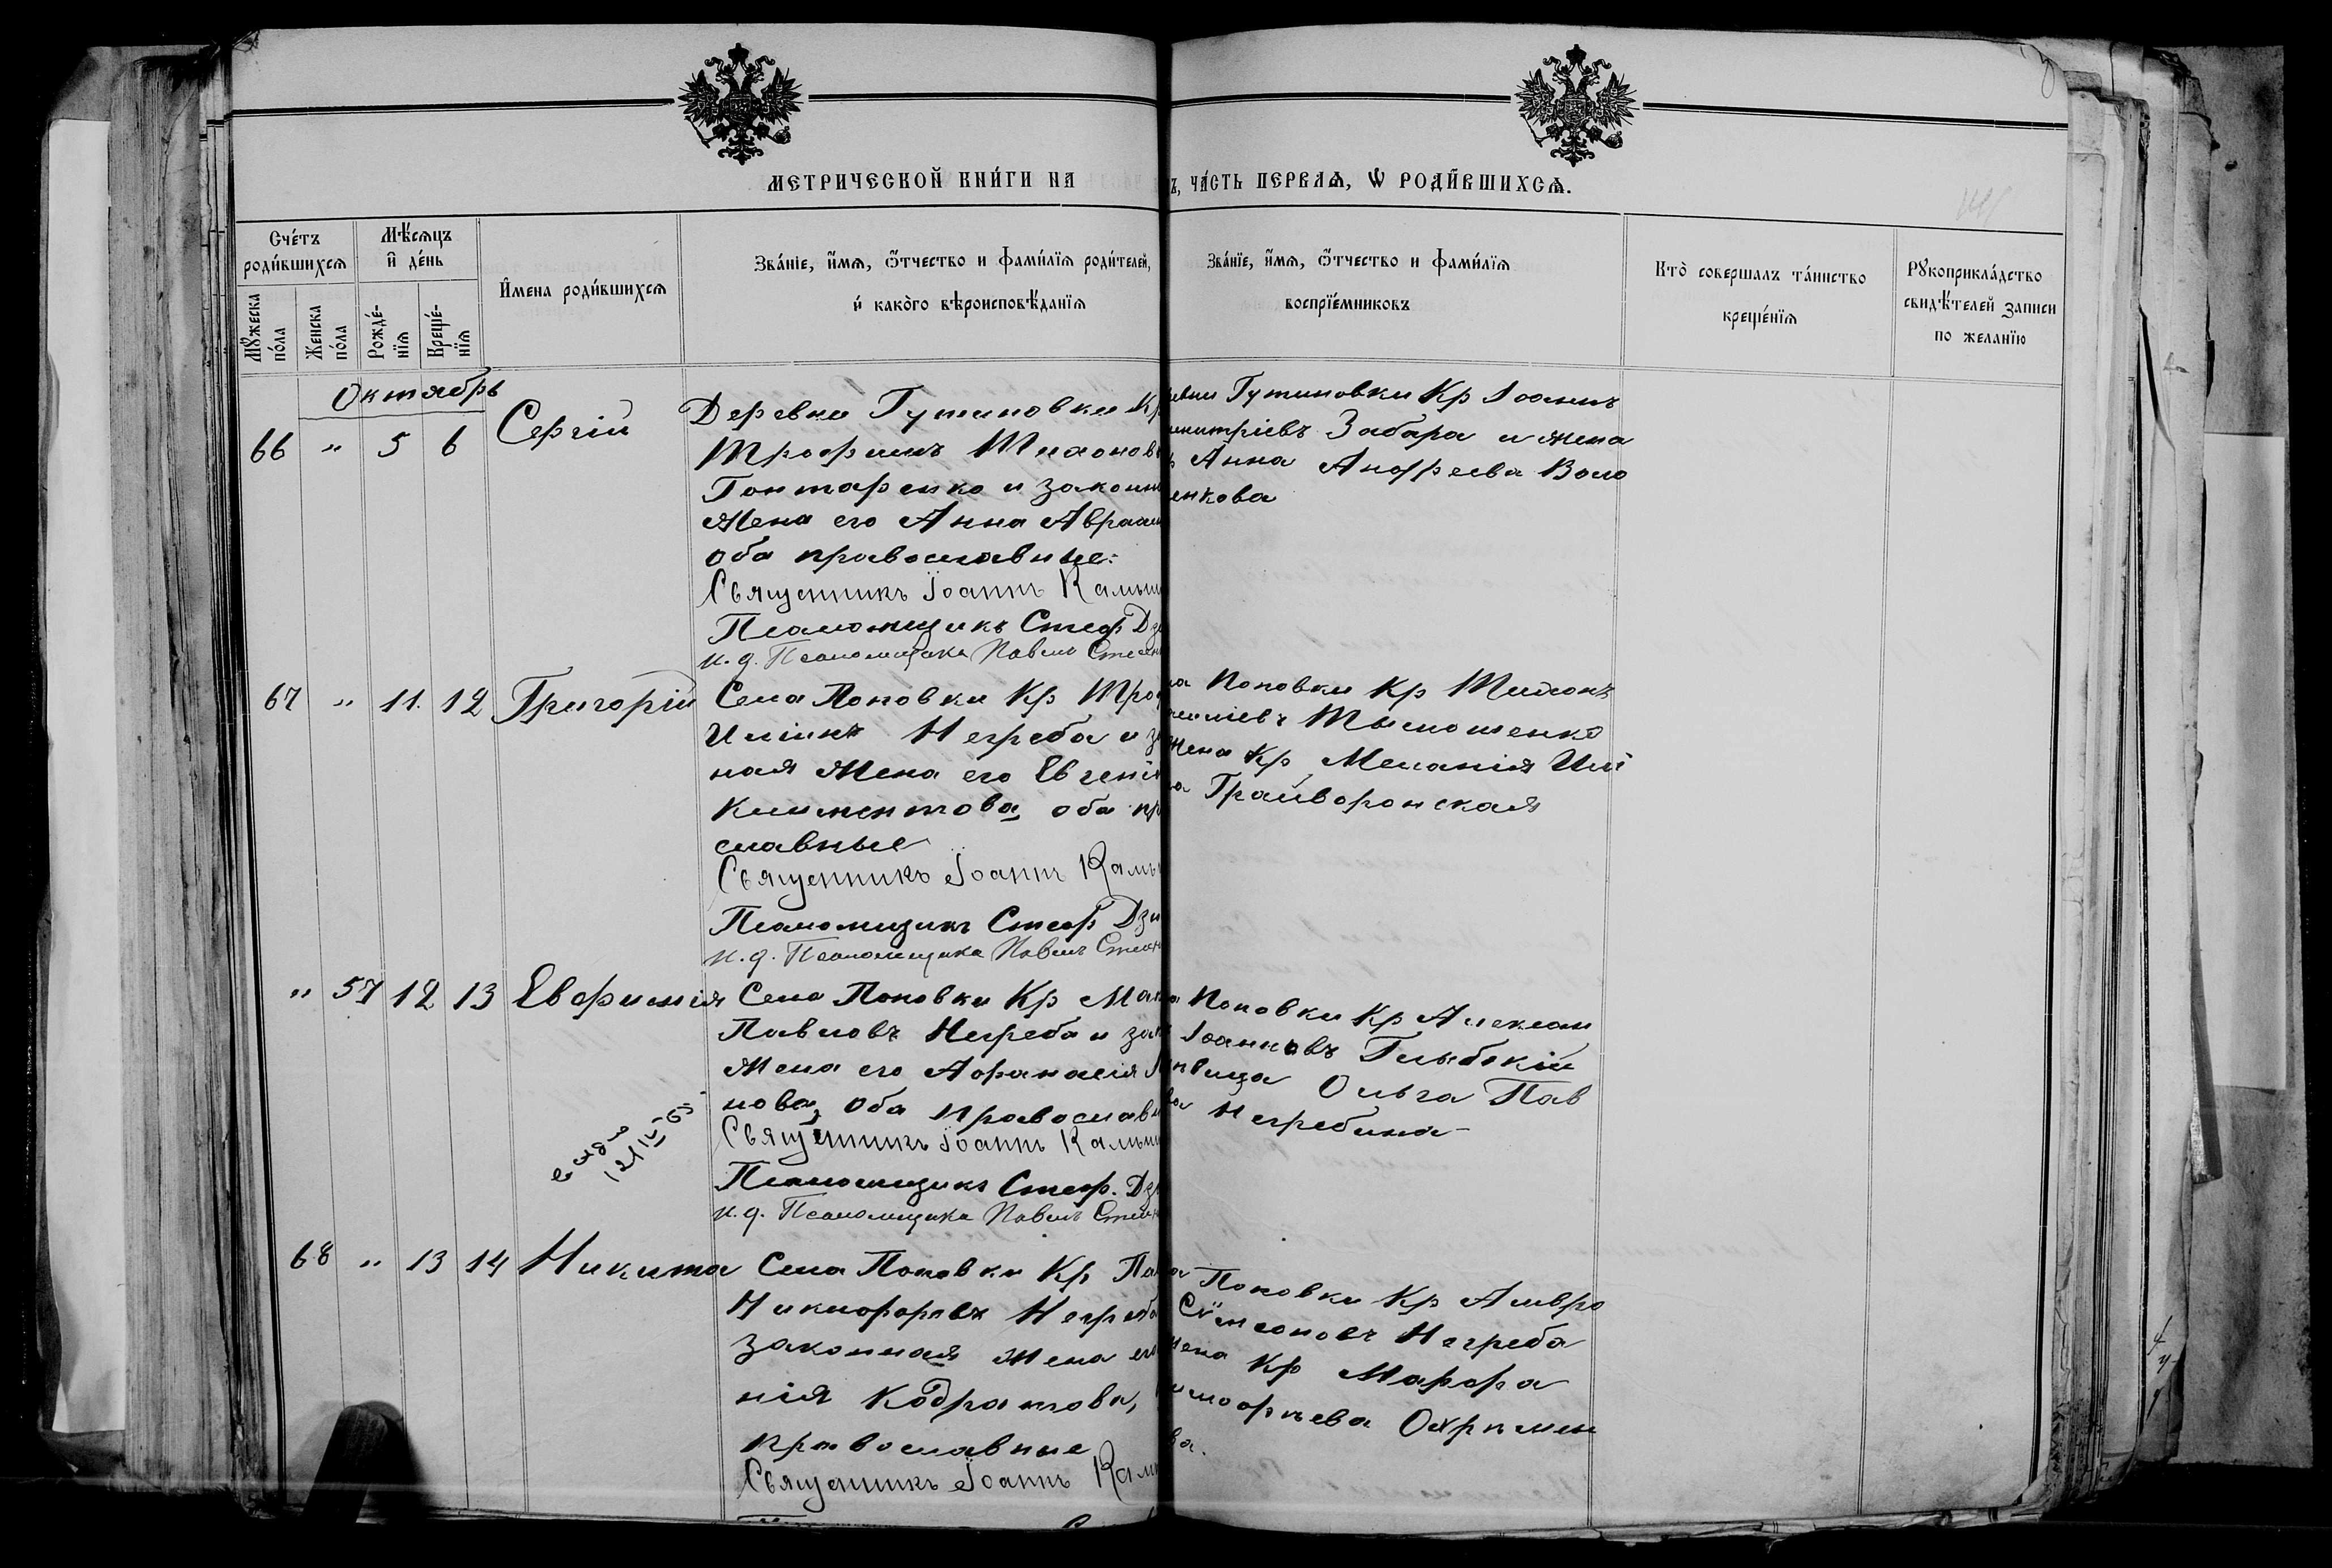 МЕТРИЧЕСКОЙ КНИ́ГИ НА
Ъ, ЧА́СТЬ ПЕРВАѦ, Ѡ РОДИ́ВШИХСѦ.
Сче́тъ
роди́вшихсѧ
Мꙋжеска
по́ла
Женска
по́ла
Мѣ́сѧцъ
и҆ де́нь
Рожде́-
нїѧ
Креще́-
нїѧ
И҆́мена роди́вшихсѧ
Зва́нїе, и҆́мѧ, ѻ҆́тчество и фами́лїѧ роди́телей,
и҆ како́го вѣроисповѣ́данїѧ
Зва́нїе, и҆́мѧ, ѻ҆́тчество и фами́лїѧ
воспрїе́мниковъ
Кто̀ совершалъ та́инство
креще́нїѧ
Рꙋкоприкла́дство
свидѣ́телей записи
по желанїю
Октябрь
66 " 5 6 Сергій
Деревни Гутниковки Кр
Трофимъ Тихоновъ
Гонтаренко и законн
жена его Анна Авраам
оба православные:
Священникъ Іоаннъ Калы
Псаломщикъ Стеф Дз
и. д. Псаломщика Павелъ Стеан
евни Гутниковки Кр Іоаннъ
митріевъ Забара и жена
Анна Андреева Воло
енкова
67 " 11. 12 Григорій
Села Поповки Кр Троф
Иліинъ Негреба и за
ная жена его Евгенія
Климентова, оба пр
славные
Священникъ Іоаннъ Калы
Псаломщикъ Стеф Дзи
и. д. Псаломщика Павелъ Стеан
ла Поповки Кр Тихонъ
Тымошенко
жена Кр Меланія Илі
на Грайворонская
" 57 12 13 Евфимія
Села Поповки Кр Мак
Павловъ Негреба и зак
жена его Афанасія
нова, Оба православн
Священникъ Іоаннъ Калы
Псаломщикъ Стеф. Дз
и. д. Псаломщика Павелъ Стеан
Поповки Кр Алексан
Іоанновъ Глыбокій
ѣвица Ольга Пав
ва Негребина
68 " 13 14 Никита
Села Поповки Кр Па
Никифоровъ Негреба
законная жена его
нія Кодратова,
православные
Священникъ Іоаннъ Калы
Поповки Кр Амвро
Сѵмеоновъ Негреба
жена Кр Марфа
Охримен
ва.